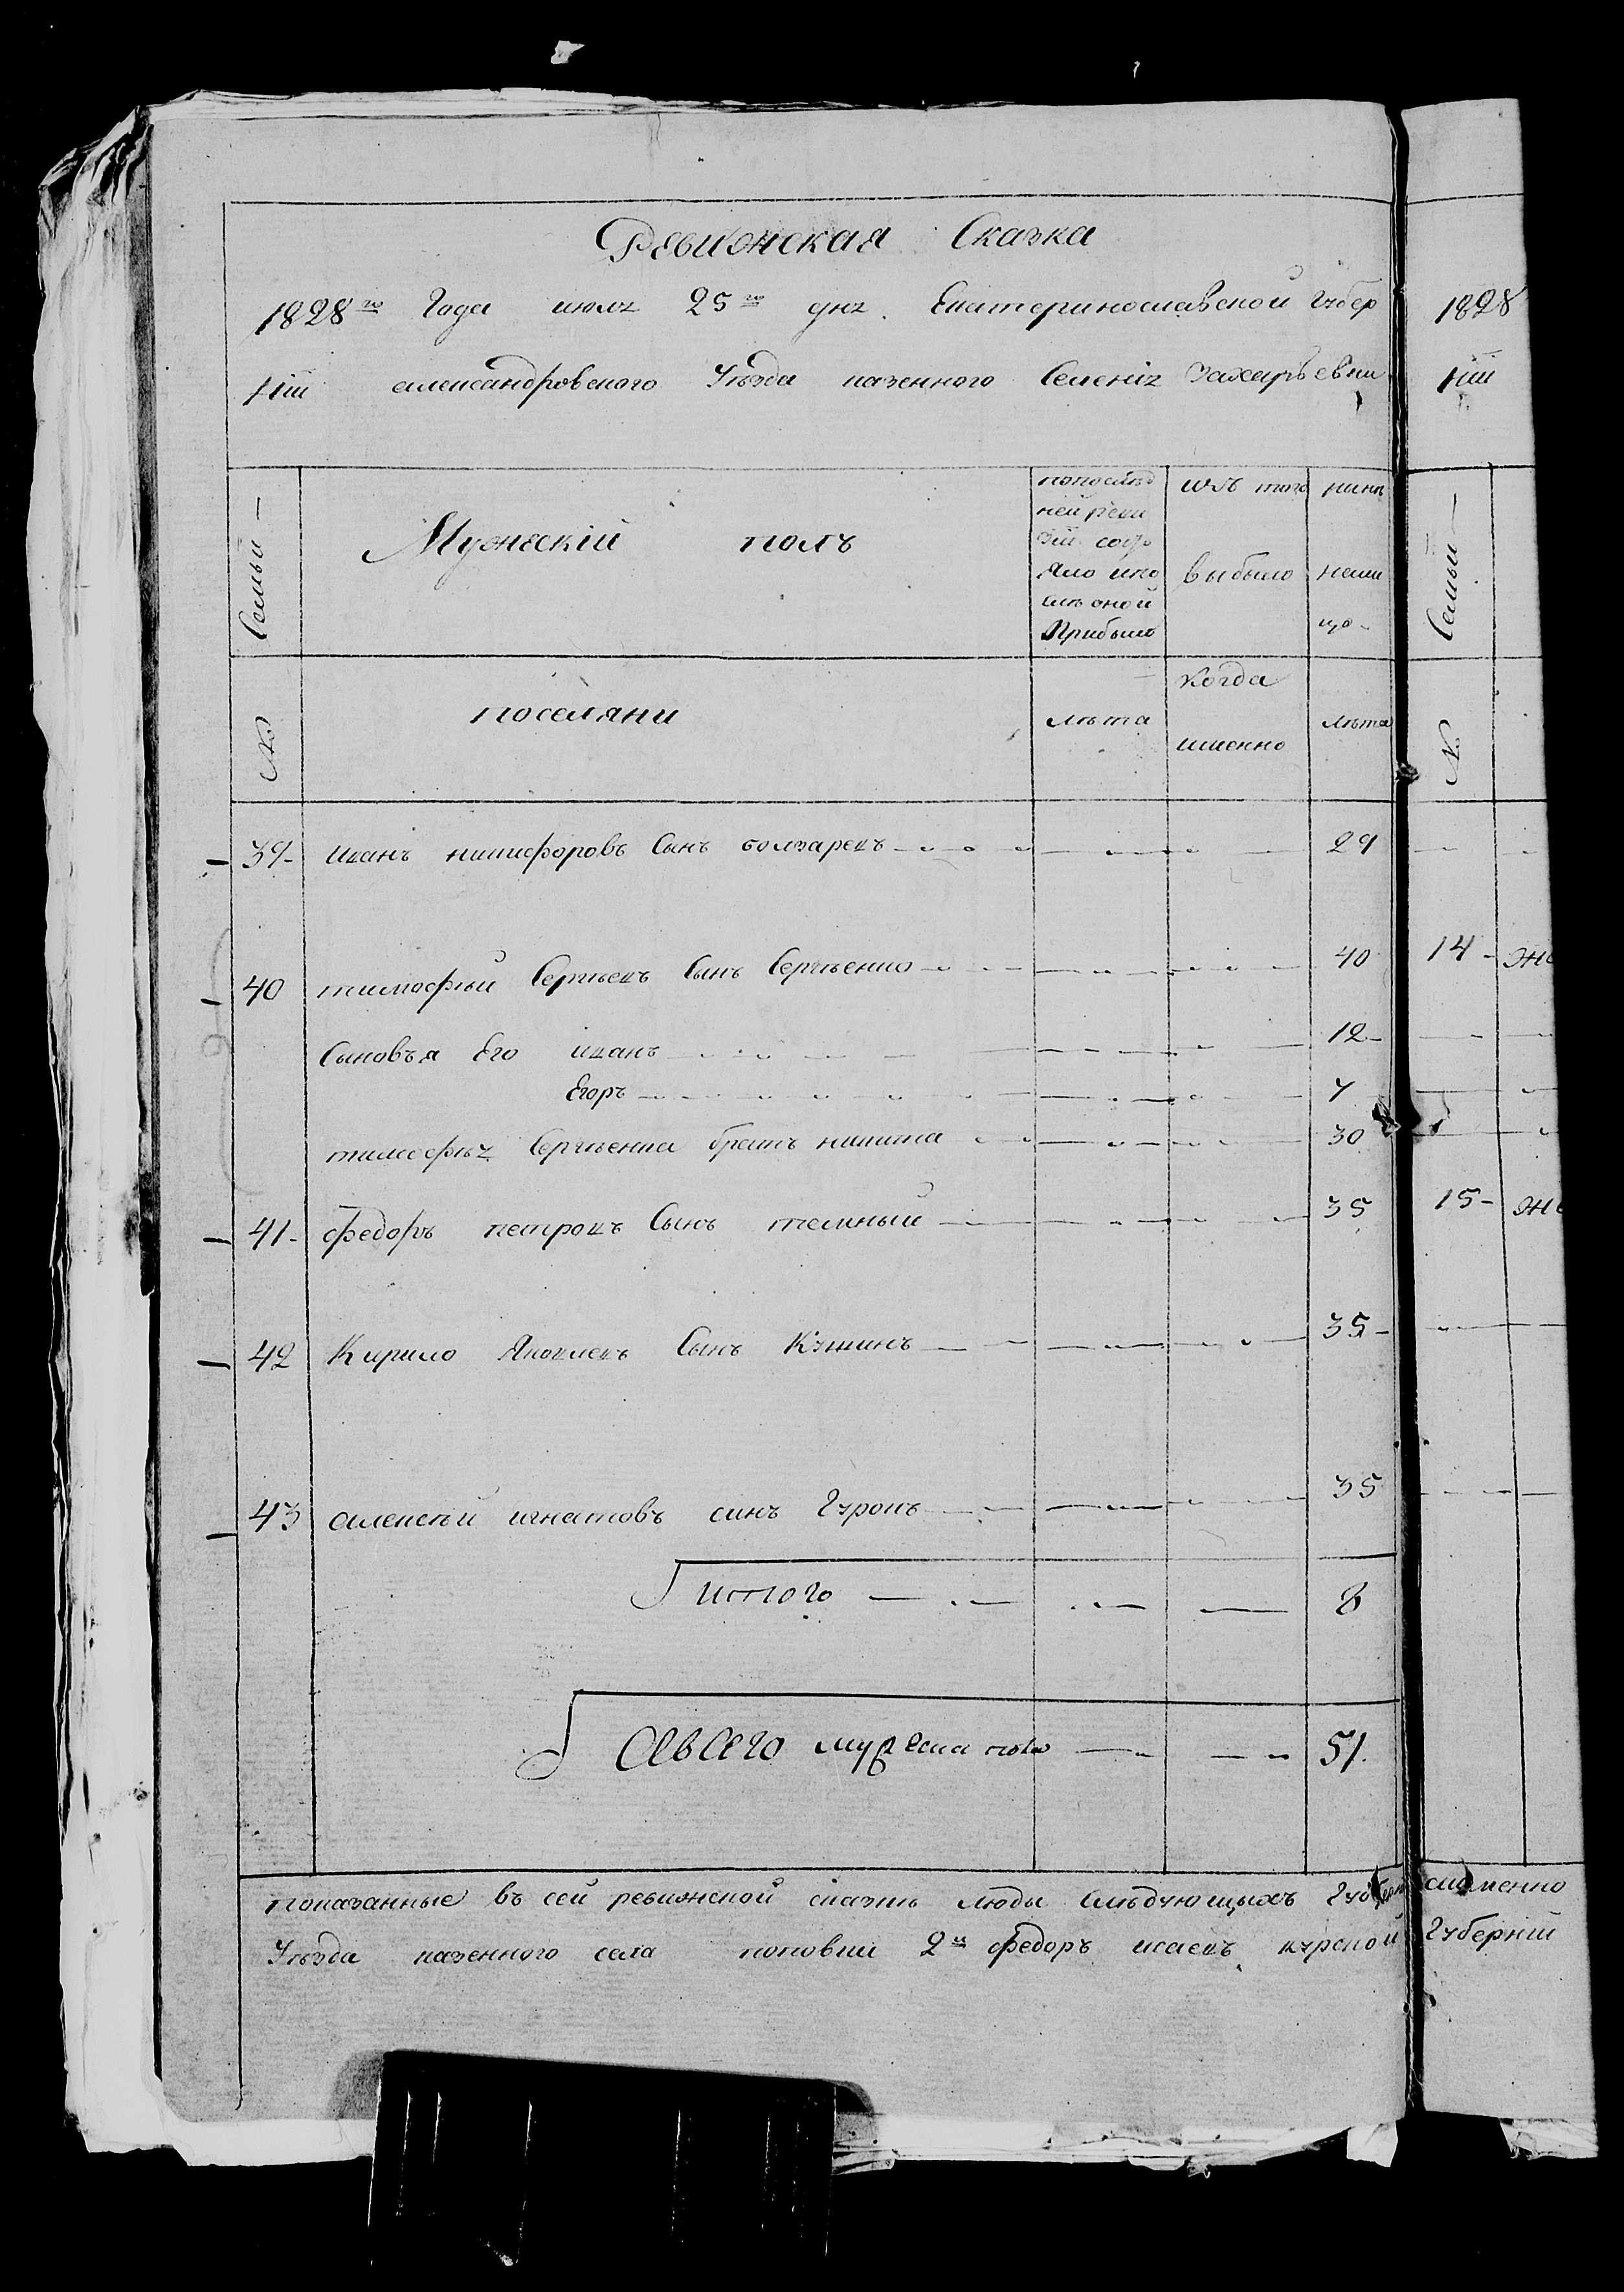 Ревизская Сказка
1828го Года июля 25го дня Екатеринославской губер
ніи александровского Уѣзда казенного Селенія Захарьевки
Семьи —
Мужескій полъ
попослѣд
ней реви
зіи состо
яло ипо
слѣ оной
Прибыло
изъ того
выбыло
нинѣ
нали
цо
№
поселяни
лѣта
когда
именно
лѣта
39 иванъ никифоровъ Сынъ болгаревъ 29
40 тимофѣй Сергѣевъ Сынъ Сергѣенко 40
Сыновъя Его иванъ 12
Егоръ 7
тимофѣя Сергѣенка братъ никита 30
41 федоръ петровъ Сынъ темный 35
42 Кирило Яковлевъ Сынъ 35
43 алексѣй игнатовъ синъ 35
итого 8
Авсего мужеска пола 51
показанные въ сей ревизской сказкѣ люды слѣдующыхъ Губер
Уѣзда казенного села поповки 2й федоръ исаевъ курской
1828
ніи
Семьи —
№
14
15
именно
Губерніи